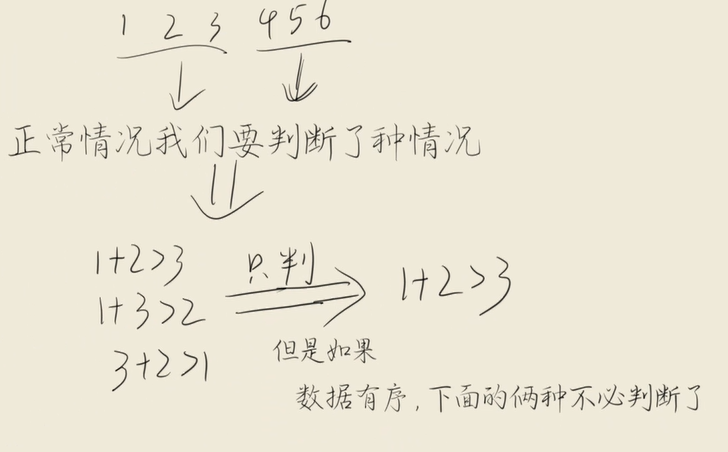 1 2 3 4 5 6
正常情况我们要判断了种情况
1+2>3 只判 1+2>3
1+3>2
3+2>1 但是如果
数据有序,下面的俩种不必判断了